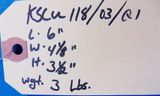 KSCU 118/03/01
L: 6"
W: 4 1/8"
H: 3 1/2"
wgt. 3 Lbs.